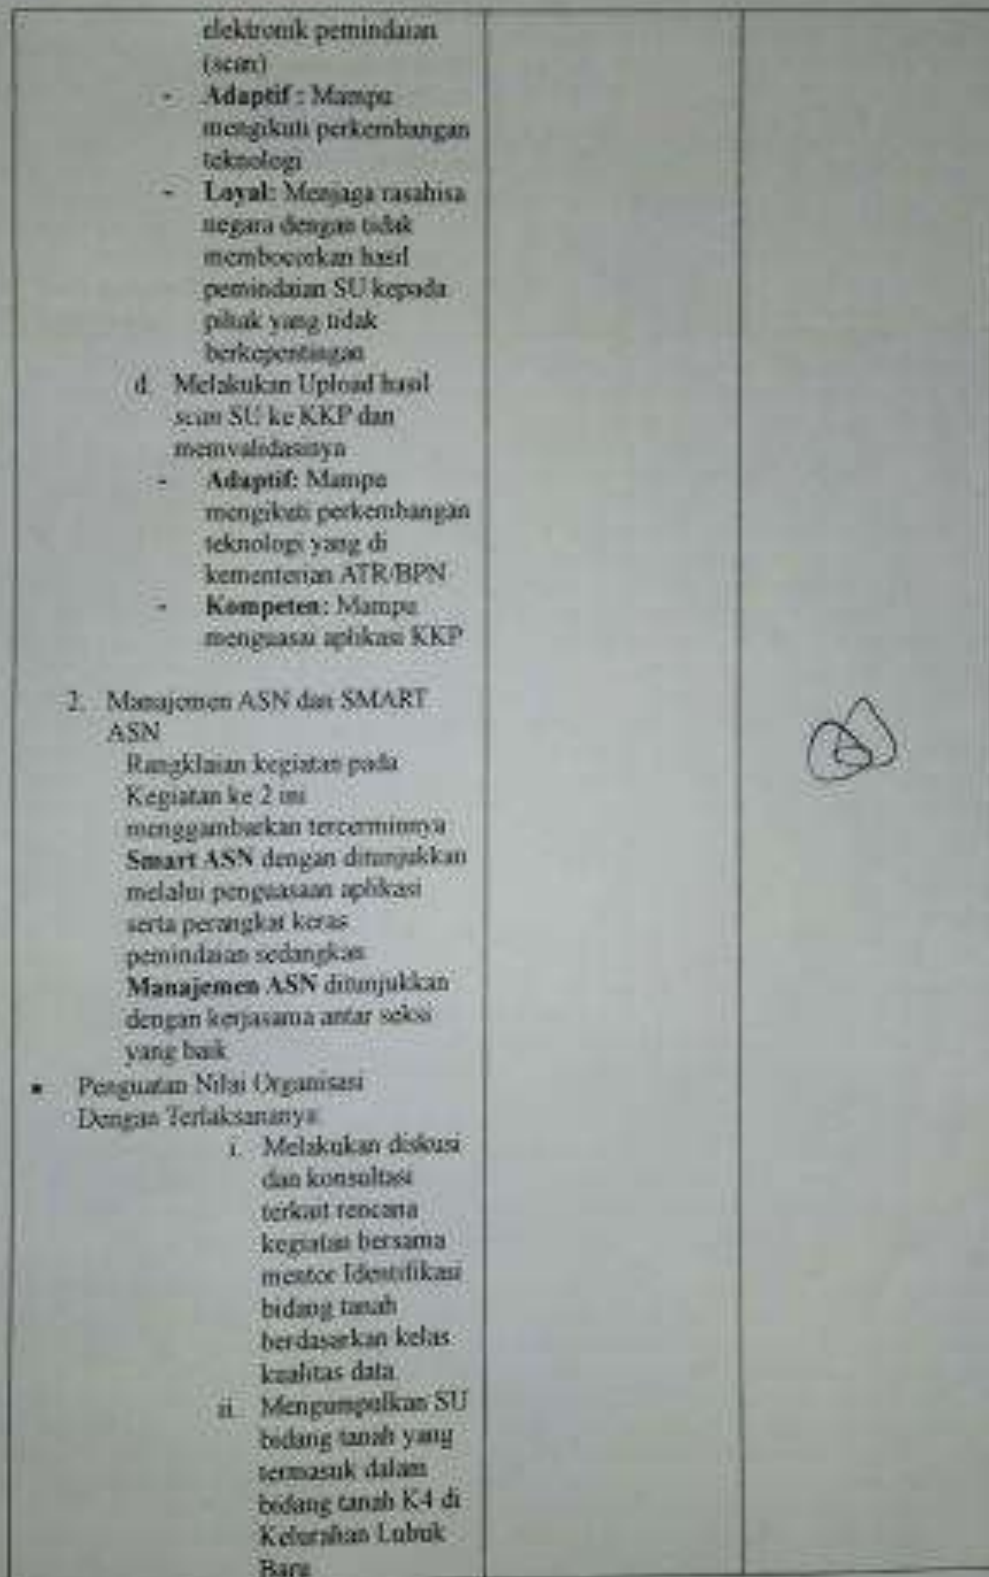 elektronik pemindaian
(scan)
- Adaptif : Mampu
mengikuti perkembangan
teknologi
- Loyal: Menjaga rasahisa
negara dengan tidak
membocorkan hasil
pemindaian SU kepada
pihak yang tidak
berkepentingan
d. Melakukan Upload hasil
scan SU ke KKP dan
memvalidasinya
- Adaptif: Mampu
mengikuti perkembangan
teknologi yang di
kementerian ATR/BPN
- Kompeten: Mampu
menguasai aplikasi KKP
2. Manajemen ASN dan SMART
ASN
Rangklaian kegiatan pada
Kegiatan ke 2 ini
menggambarkan tercerminnya
Smart ASN dengan ditunjukkan
melalui penguasaan aplikasi
serta perangkat keras
pemindaian sedangkan
Manajemen ASN ditunjukkan
dengan kerjasama antar seksi
yang baik
▪ Penguatan Nilai Organisasi
Dengan Terlaksananya
i. Melakukan diskusi
dan konsultasi
terkait rencana
kegiatan bersama
mentor Identifikasi
bidang tanah
berdasarkan kelas
kualitas data
ii. Mengumpulkan SU
bidang tanah yang
termasuk dalam
bidang tanah K4 di
Kelurahan Lubuk
Baru